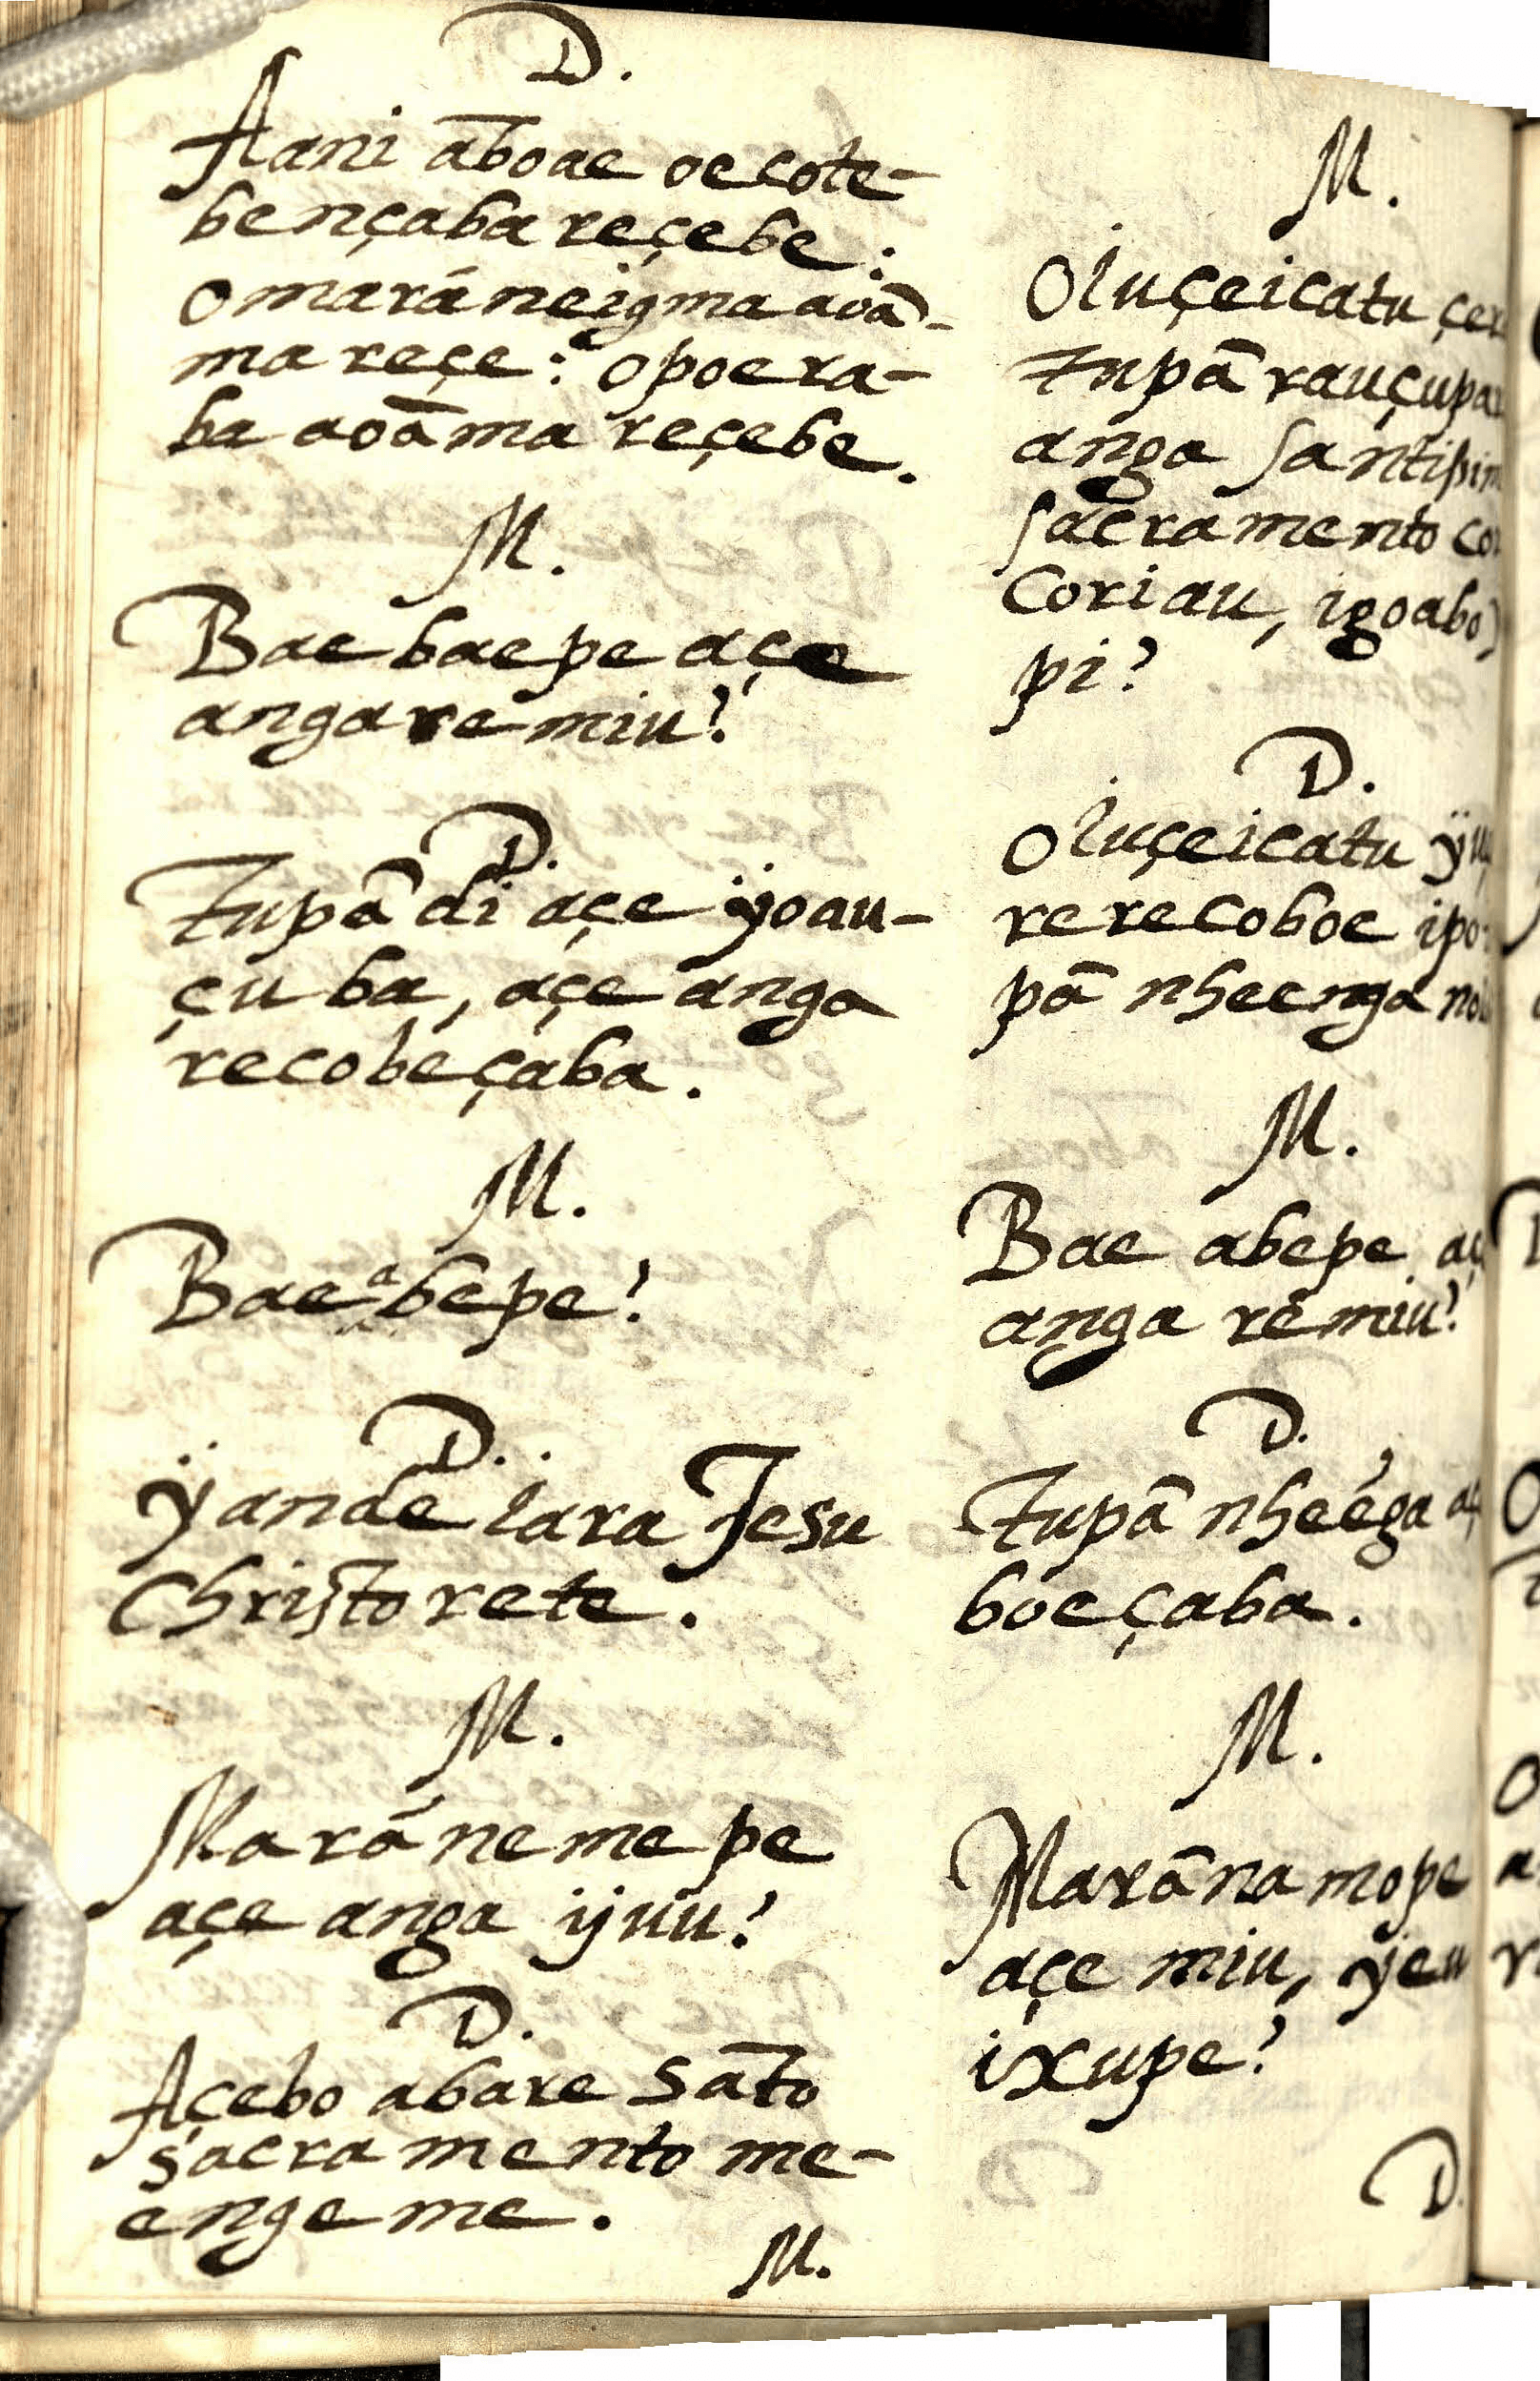 D.
Aani āboae oecote-
bençaba reçebe:
omarâneigma aoā-
ma reçe: opoera-
ba aoāma reçebe.
M.
Bae baepe açe
angaremiu?
D.
Tupā di açe ÿoau-
çuba, açe anga
recobeçaba.
M.
Bae abepe?
D.
Ÿande Iara Jesu
Christo rete.
M.
Marâ nemepe
açe anga ijuu?
D.
Açebo abare sāto
sacramento me-
engeme.
M.
M.
Oiuçeicatu
tupā
anga
sacramento
Coriau,
pi?
D.
Oiuçeicatu
rerecoboe
pā nheenga
M.
Bae abepe
anga remiu?
D.
Tupā nheéga
boeçaba.
M.
Marāna mope
açe miu,
ixupe?
D.